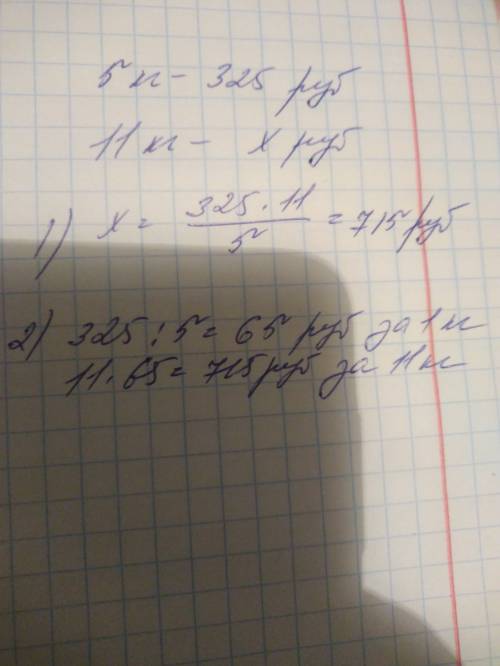 5 кг - 325 руб
11 кг - x руб
1) x = 325 · 11 / 5 = 715 руб
2) 325 : 5 = 65 руб за 1 кг
11 · 65 = 715 руб за 11 кг